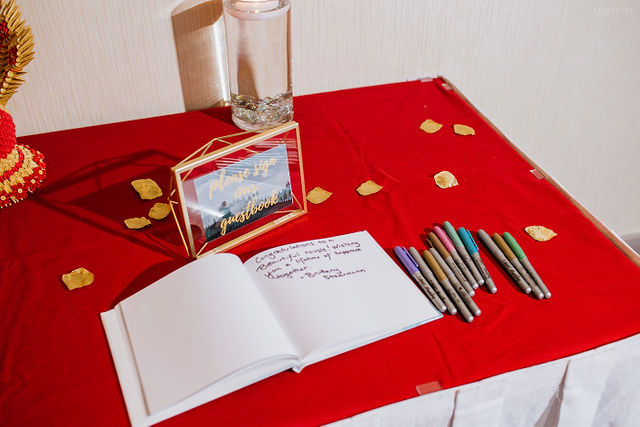 please sign
our
guestbook
Congratulations to a
Beautiful couple! Wishing
you a lifetime of happiness
together.
- Brittany